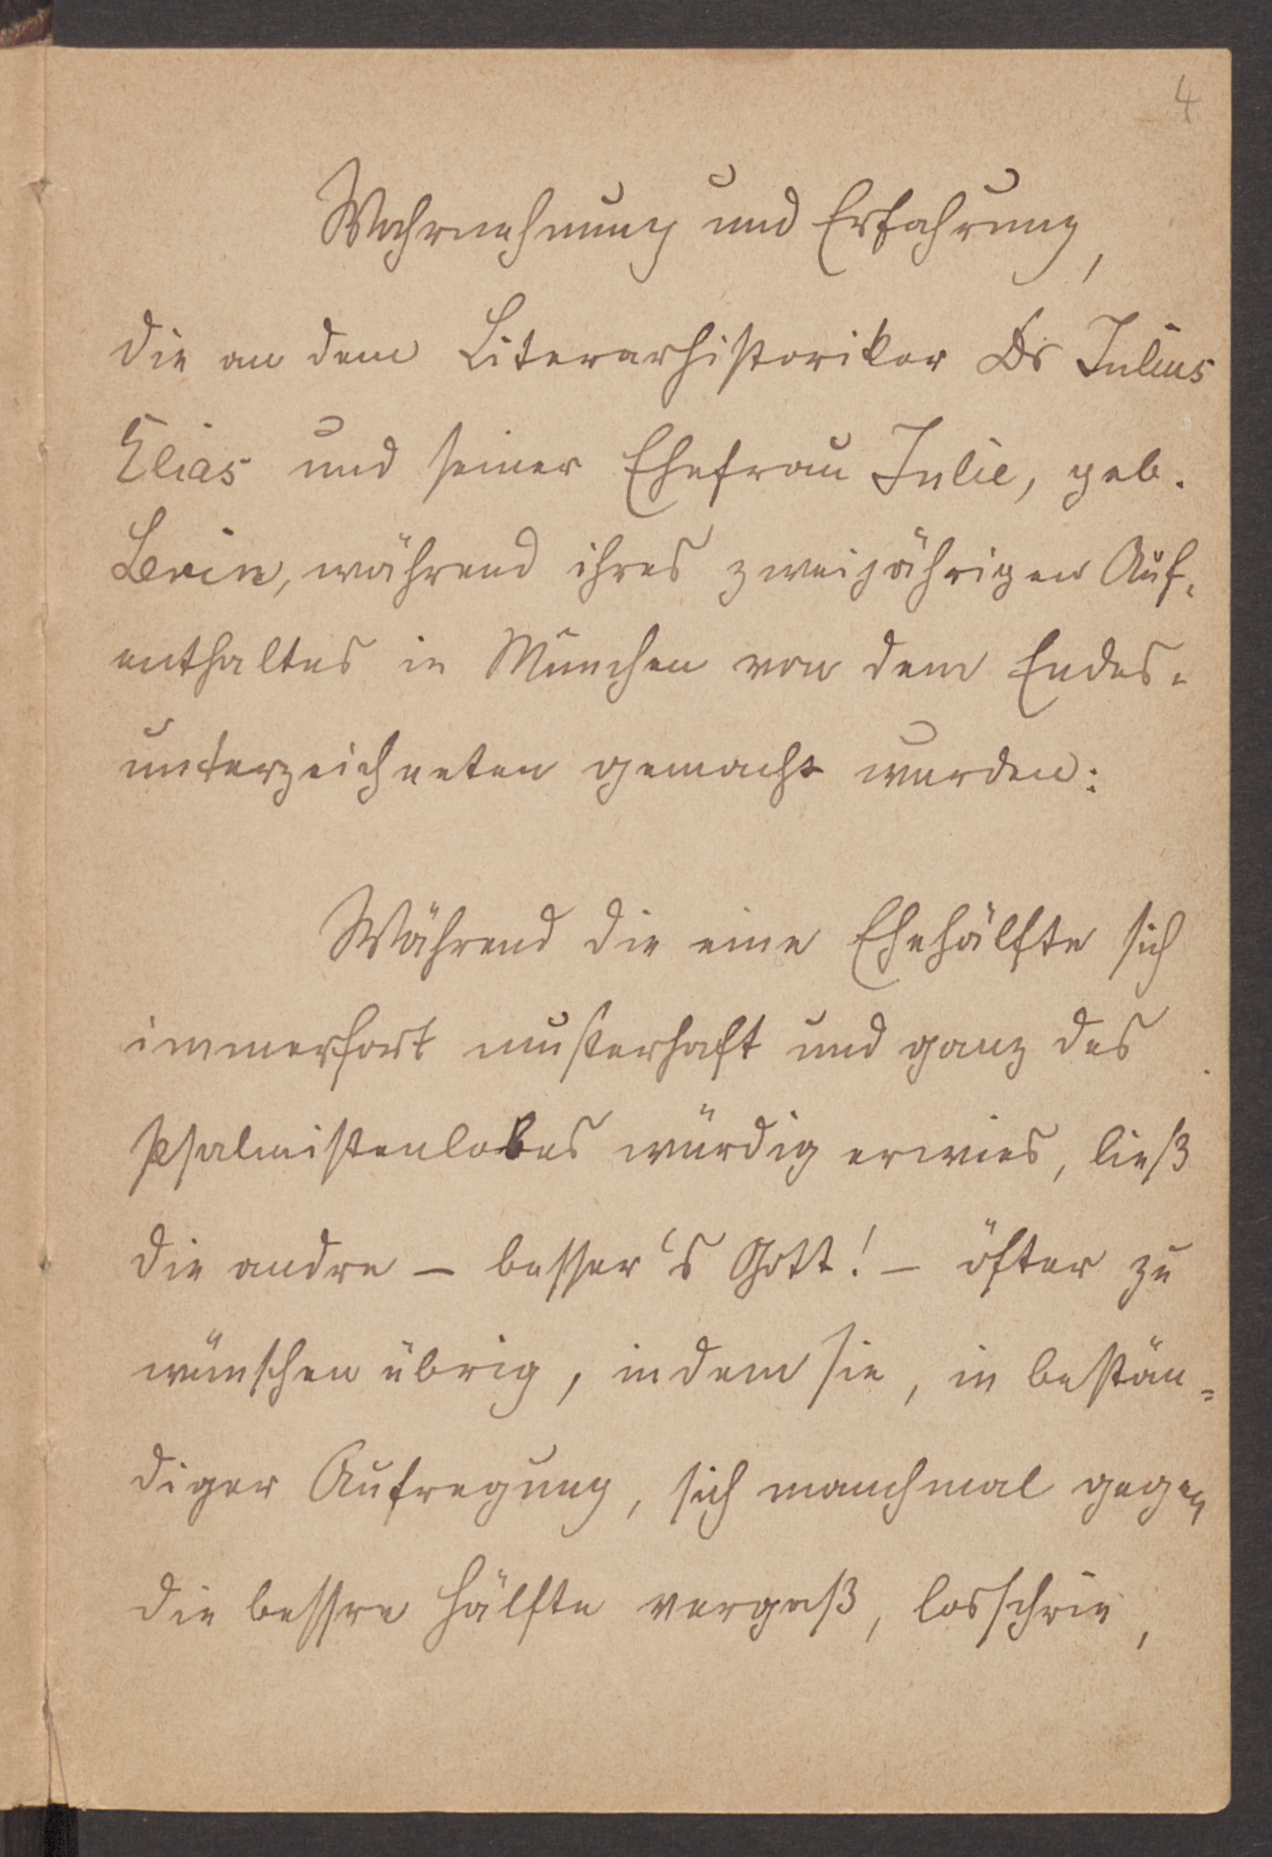 4
Wahrnehmung und Erfahrung,
die an dem Literarhistoriker Dr Julius
Elias und seiner Ehefrau Julie, geb.
Levin, während ihres zweijährigen Auf-
enthaltes in München von dem Endes-
unterzeichneten gemacht wurden:
Während die eine Ehehälfte sich
immerfort musterhaft und ganz des
Psalmistenlobes würdig erwies, ließ
die andre – besser's Gott! – öfter zu
wünschen übrig, indem sie, in bestän=
diger Aufregung, sich manchmal gegen
die bessre Hälfte vergaß, losschrie,